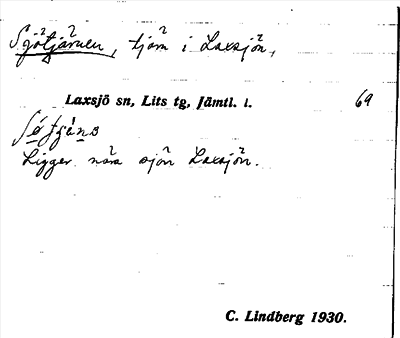 Sjötjärnen, tjärn i Laxsjön,
Laxsjö sn, Lits tg, Jämtl. l. 69
Ligger nära sjön Laxsjön.
C. Lindberg 1930.